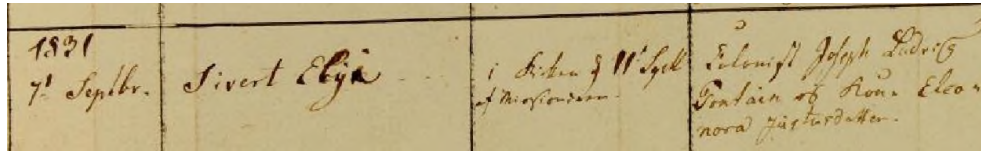 1831
7d Septbr.
Sivert Elija
i Kirken
af Missionairen.
Colonist Joseph Ludvig
Fontain og Kone Eleo-
nora Justusdatter.